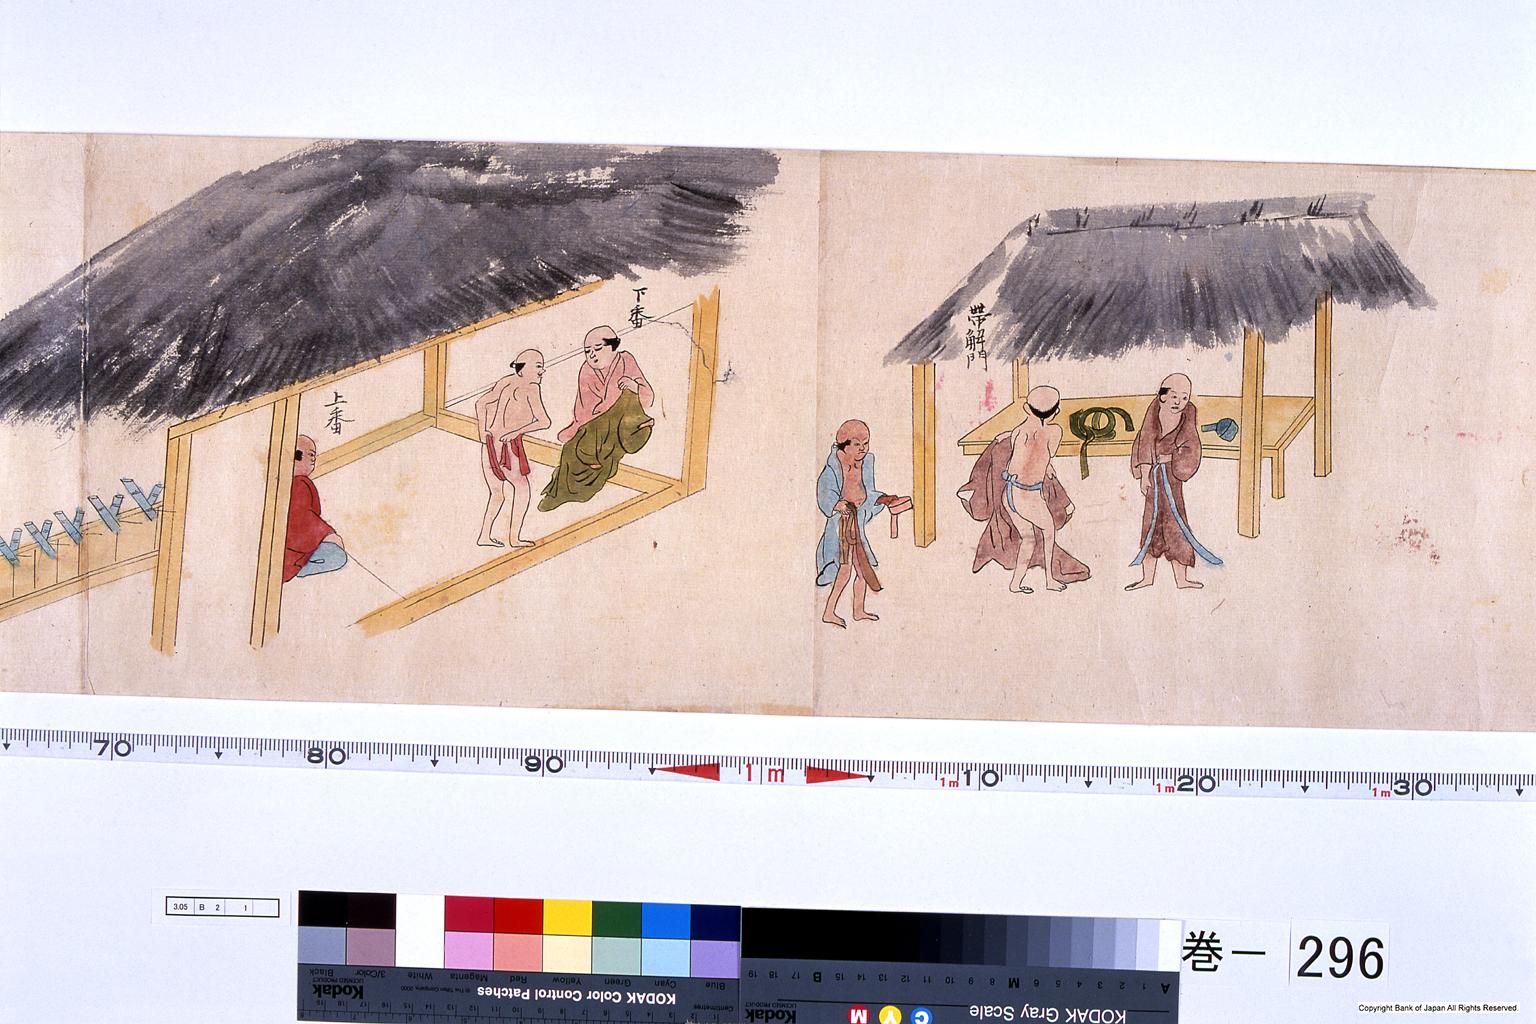 帯解門
下番
上番
70
80
90
1m
1m10
1m20
1m30
3.05 B 2 1
KODAK Color Control Patches
© The Tiffen Company, 2000
Kodak
LICENSED PRODUCT
Black
3/Color
White
Magenta
Red
Yellow
Green
Cyan
Blue
Centimetres
KODAK Gray Scale
C Y M
Kodak
LICENSED PRODUCT
A 1 2 3 4 5 6 M 8 9 10 11 12 13 14 15 B 17 18 19
巻一
296
Copyright Bank of Japan All Rights Reserved.